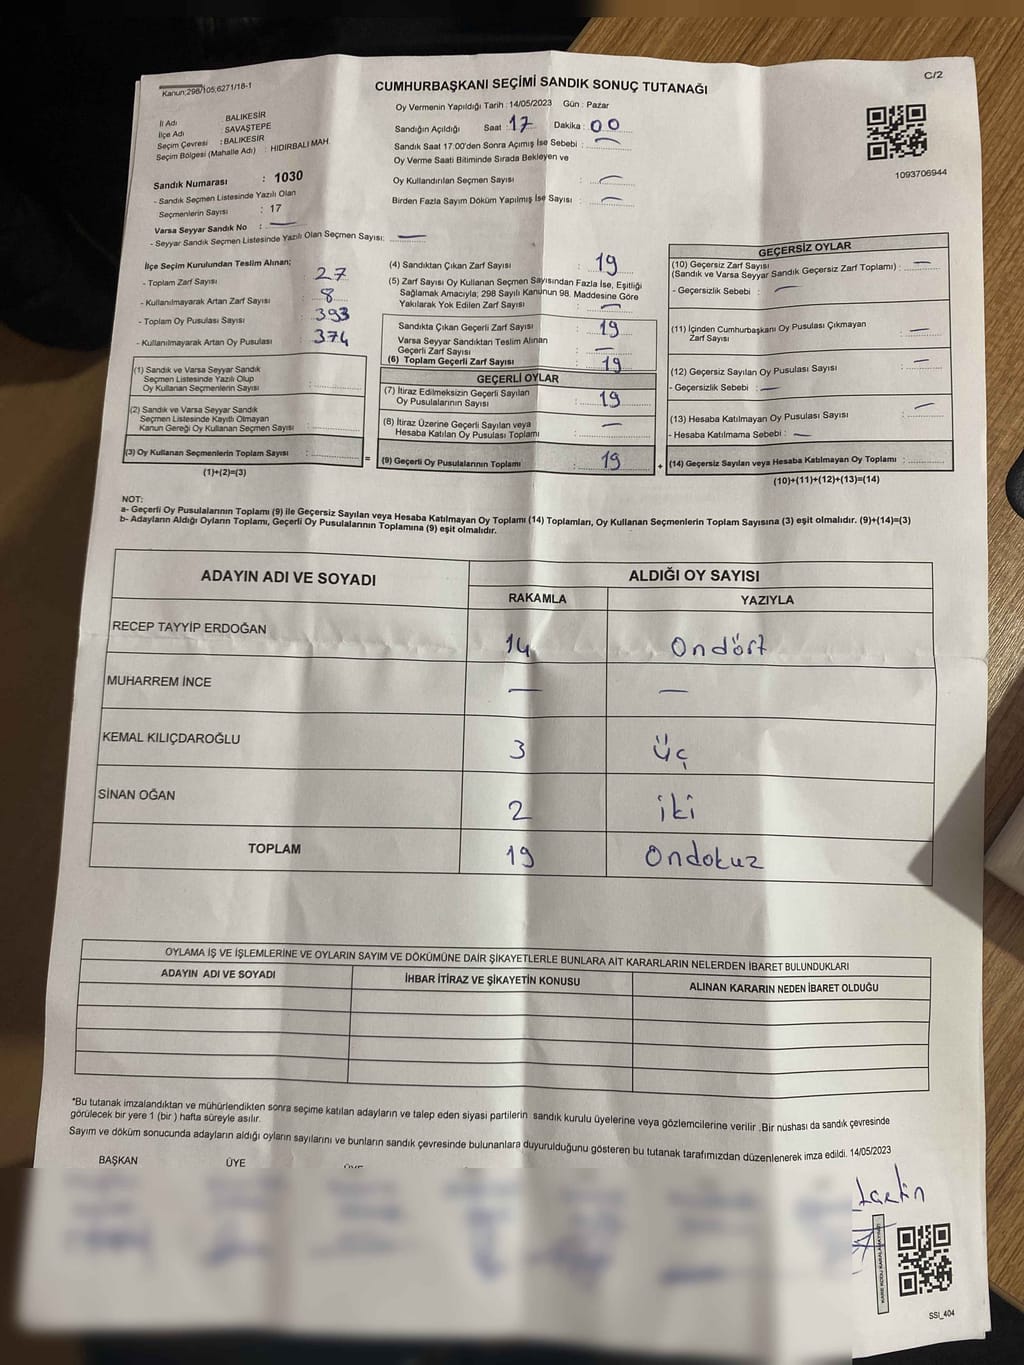 C/2
Kanun;298/105,6271/18-1
CUMHURBAŞKANI SEÇİMİ SANDIK SONUÇ TUTANAĞI
Oy Vermenin Yapıldığı Tarih : 14/05/2023 Gün : Pazar
İl Adı BALIKESİR
İlçe Adı : SAVAŞTEPE
Seçim Çevresi : BALIKESİR
Seçim Bölgesi (Mahalle Adı) : HIDIRBALI MAH.
Sandığın Açıldığı Saat : 17 Dakika : 00
Sandık Saat 17:00'den Sonra Açımış İse Sebebi : —
Oy Verme Saati Bitiminde Sırada Bekleyen ve
Oy Kullandırılan Seçmen Sayısı : —
Birden Fazla Sayım Döküm Yapılmış İse Sayısı : —
1093706944
Sandık Numarası : 1030
- Sandık Seçmen Listesinde Yazılı Olan
Seçmenlerin Sayısı : 17
Varsa Seyyar Sandık No : —
- Seyyar Sandık Seçmen Listesinde Yazılı Olan Seçmen Sayısı: —
İlçe Seçim Kurulundan Teslim Alınan;
- Toplam Zarf Sayısı : 27
- Kullanılmayarak Artan Zarf Sayısı : 8
- Toplam Oy Pusulası Sayısı : 393
- Kullanılmayarak Artan Oy Pusulası : 374
(1) Sandık ve Varsa Seyyar Sandık
Seçmen Listesinde Yazılı Olup
Oy Kullanan Seçmenlerin Sayısı :
(2) Sandık ve Varsa Seyyar Sandık
Seçmen Listesinde Kayıtlı Olmayan
Kanun Gereği Oy Kullanan Seçmen Sayısı :
(3) Oy Kullanan Seçmenlerin Toplam Sayısı : =
(1)+(2)=(3)
(4) Sandıktan Çıkan Zarf Sayısı : 19
(5) Zarf Sayısı Oy Kullanan Seçmen Sayısından Fazla İse, Eşitliği
Sağlamak Amacıyla; 298 Sayılı Kanunun 98. Maddesine Göre
Yakılarak Yok Edilen Zarf Sayısı : —
Sandıkta Çıkan Geçerli Zarf Sayısı : 19
Varsa Seyyar Sandıktan Teslim Alınan
Geçerli Zarf Sayısı : —
(6) Toplam Geçerli Zarf Sayısı : 19
GEÇERLİ OYLAR
(7) İtiraz Edilmeksizin Geçerli Sayılan
Oy Pusulalarının Sayısı : 19
(8) İtiraz Üzerine Geçerli Sayılan veya
Hesaba Katılan Oy Pusulası Toplamı : —
(9) Geçerli Oy Pusulalarının Toplamı : 19 +
GEÇERSİZ OYLAR
(10) Geçersiz Zarf Sayısı
(Sandık ve Varsa Seyyar Sandık Geçersiz Zarf Toplamı) : —
- Geçersizlik Sebebi : —
(11) İçinden Cumhurbaşkanı Oy Pusulası Çıkmayan
Zarf Sayısı : —
(12) Geçersiz Sayılan Oy Pusulası Sayısı : —
- Geçersizlik Sebebi : —
(13) Hesaba Katılmayan Oy Pusulası Sayısı : —
- Hesaba Katılmama Sebebi : —
(14) Geçersiz Sayılan veya Hesaba Katılmayan Oy Toplamı :
(10)+(11)+(12)+(13)=(14)
NOT:
a- Geçerli Oy Pusulalarının Toplamı (9) ile Geçersiz Sayılan veya Hesaba Katılmayan Oy Toplamı (14) Toplamları, Oy Kullanan Seçmenlerin Toplam Sayısına (3) eşit olmalıdır. (9)+(14)=(3)
b- Adayların Aldığı Oyların Toplamı, Geçerli Oy Pusulalarının Toplamına (9) eşit olmalıdır.
ADAYIN ADI VE SOYADI ALDIĞI OY SAYISI
RAKAMLA YAZIYLA
RECEP TAYYİP ERDOĞAN 14 Ondört
MUHARREM İNCE — —
KEMAL KILIÇDAROĞLU 3 üç
SİNAN OĞAN 2 iki
TOPLAM 19 Ondokuz
OYLAMA İŞ VE İŞLEMLERİNE VE OYLARIN SAYIM VE DÖKÜMÜNE DAİR ŞİKAYETLERLE BUNLARA AİT KARARLARIN NELERDEN İBARET BULUNDUKLARI
ADAYIN ADI VE SOYADI İHBAR İTİRAZ VE ŞİKAYETİN KONUSU ALINAN KARARIN NEDEN İBARET OLDUĞU
*Bu tutanak imzalandıktan ve mühürlendikten sonra seçime katılan adayların ve talep eden siyasi partilerin sandık kurulu üyelerine veya gözlemcilerine verilir .Bir nüshası da sandık çevresinde
görülecek bir yere 1 (bir ) hafta süreyle asılır.
Sayım ve döküm sonucunda adayların aldığı oyların sayılarını ve bunların sandık çevresinde bulunanlara duyurulduğunu gösteren bu tutanak tarafımızdan düzenlenerek imza edildi. 14/05/2023
BAŞKAN ÜYE
SSI_404